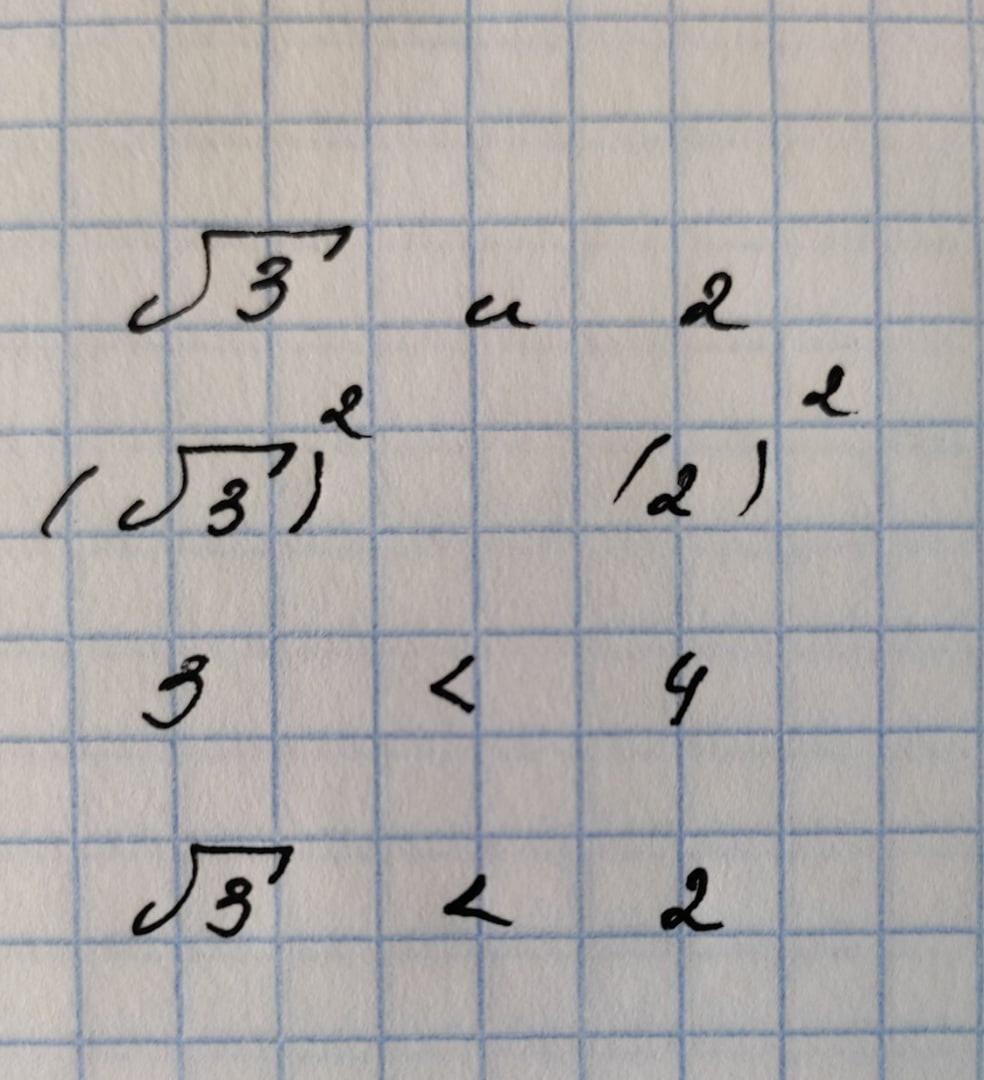 √3 и 2
(√3)² (2)²
3 < 4
√3 < 2